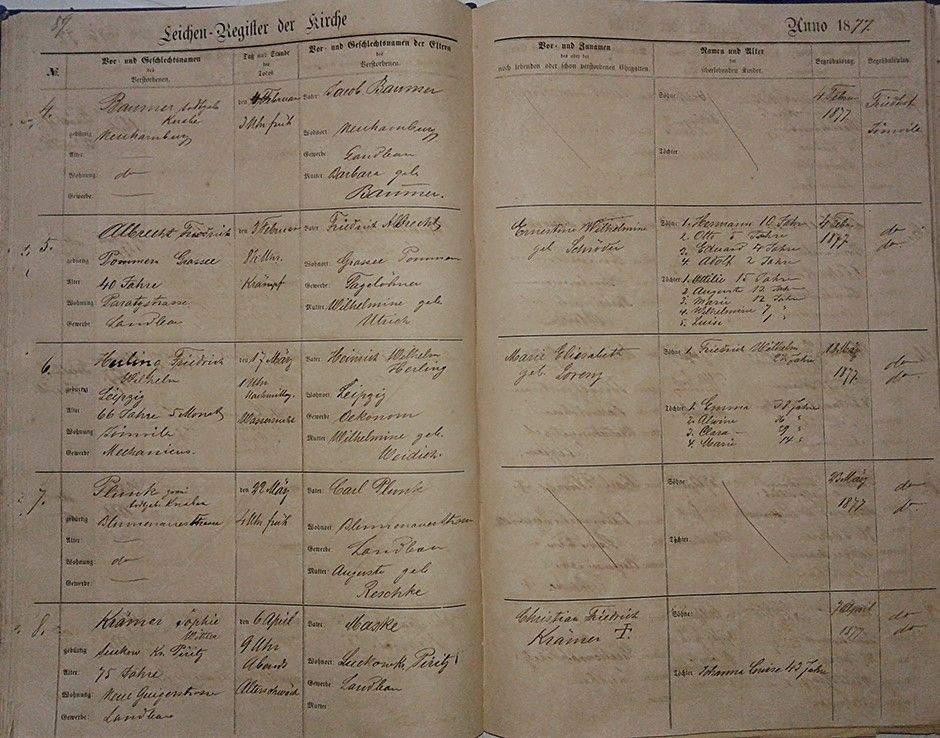 89.
Leichen-Register der Kirche
Anno 1877.
№
Vor- und Geschlechtsnamen
des
Verstorbenen.
Tag und Stunde
des
Todes
Vor- und Geschlechtsnamen der Eltern
des
Verstorbenen.
Vor- und Zunamen
des oder der
noch lebenden oder schon verstorbenen Ehegatten.
Namen und Alter
der
überlebenden Kinder.
Begräbnißtag.
Begräbnißplatz.
4.
Baumer todtgeb
Knabe
gebürtig Neuhamburg
Alter:
Wohnung: do
Gewerbe:
den 4 Februar
3 Uhr früh
Vater: Jacob Baumer
Wohnort: Neuhamburg
Gewerbe Landbau
Mutter Barbara geb
Baumer.
Söhne:
Töchter:
4 Febr
1877
Friedhof
Joinvile
5.
Albrecht Friedrich
gebürtig Pommern Grassee
Alter 40 Jahre
Wohnung:
Gewerbe: Landbau
den 3 Februar
Uhr.
Krämpf
Vater Friedrich Albrecht
Wohnort: Grassee Pommern
Gewerbe: Tagelöhner
Mutter: Wilhelmine geb
Utrich
Ernestine Wilhelmine
geb Schröder
Söhne: 1. Hermann 10 Jahr
2. Otto 5 Jahre
3. Eduard 4 Jahr
4. Adolf 2 Jahr
Töchter: 1. Ottilie 15 Jahre
2. Auguste 13 Jahr
3. Marie 12 Jahr
4. Wilhelmine 7 "
5. Luise 1 "
4 Febr
1877
do
do
6
Herling Friedrich
Wilhelm
gebürtig Leipzig
Alter: 66 Jahre 5 Monat
Wohnung: Joinvile
Gewerbe Mechanicus.
den 17 März
1 Uhr
Nachmittag.
Wassersucht
Vater Heinrich Wilhelm
Herling
Wohnort: Leipzig
Gewerbe: Oekonom
Mutter Wilhelmine geb.
Weidich
Marie Elisabeth
geb. Lorenz
Söhne 1. Friedrich Wilhelm
Jahre
Töchter: 1. Emma 38 Jahre
2. Alwine "
3. Clara 29 "
4. Marie 14 "
März
1877.
do
do
7.
Plunk
todtgeb Knabe
gebürtig Blumenauerstrasse
Alter:
Wohnung: do
Gewerbe:
den 22 März
4 Uhr früh
Vater: Carl Plunk
Wohnort: Blumenauerstrasse
Gewerbe: Landbau
Mutter: Auguste geb
Reschke
Söhne:
Töchter:
23 März
1877
do
do
8.
Krämer Sophie
Wittwe
gebürtig Luckow Kr. Piritz
Alter: 75 Jahre
Wohnung:
Gewerbe: Landbau
den 6 April
9 Uhr
Abends
Altersschwäche
Vater Maske
Wohnort: Luckow Kr Piritz
Gewerbe: Landbau
Mutter
Christian Friedrich
Krämer ✝
Söhne:
Töchter Johanna Louise 43 Jahre
7 April
1877.
do
do